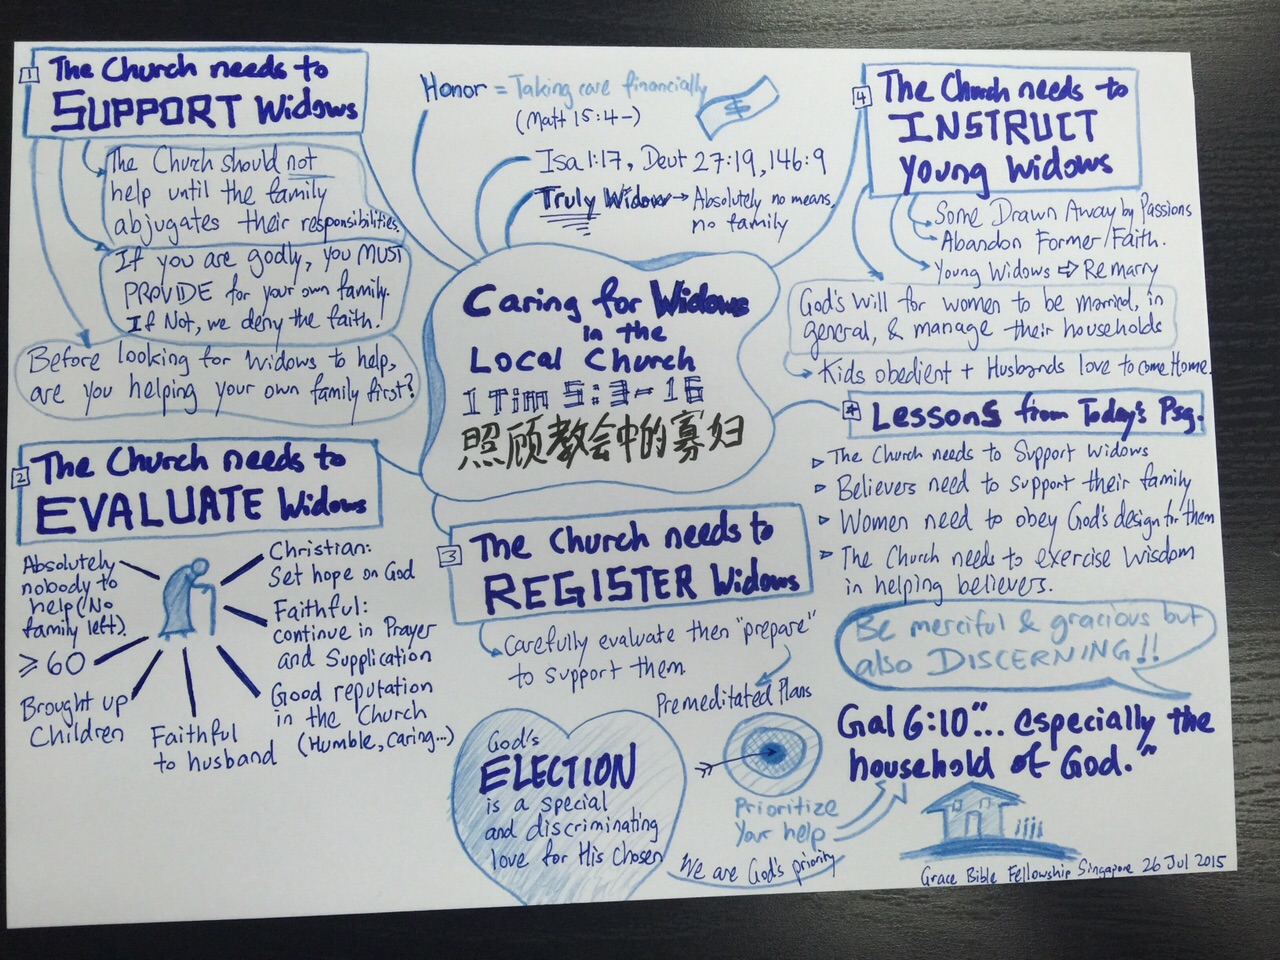 Caring for Widows
in the
Local Church
1 Tim 5:3-16
照顾教会中的寡妇
Honor = Taking care financially
(Matt 15:4-)
$
Isa 1:17, Deut 27:19, 146:9
Truly Widow → Absolutely no means,
no family
1 The Church needs to
SUPPORT Widows
The Church should not
help until the family
abjugates their responsibilities.
If you are godly, you MUST
PROVIDE for your own family.
If Not, we deny the faith!
Before looking for Widows to help,
are you helping your own family first?
2 The Church needs to
EVALUATE Widows
Absolutely
nobody to
help (No
family left).
≥ 60
Brought up
Children
Faithful
to husband
Christian:
Set hope on God
Faithful:
continue in Prayer
and Supplication
Good reputation
in the Church
(Humble, caring...)
3 The Church needs to
REGISTER Widows
Carefully evaluate then "prepare"
to support them
Premeditated Plans
God's
ELECTION
is a special
and discriminating
love for His Chosen
Prioritize
Your help
We are God's priority
4 The Church needs to
INSTRUCT
Young Widows
Some Drawn Away by Passions
Abandon Former Faith.
Young Widows ⇨ Remarry
God's Will for women to be married, in
general, & manage their households
Kids obedient + Husbands love to come Home.
* Lessons from Today's Psg.
▷ The Church needs to Support Widows
▷ Believers need to support their family
▷ Women need to obey God's design for them
▷ The Church needs to exercise Wisdom
in helping believers.
Be merciful & gracious but
also DISCERNING!!
Gal 6:10 "... especially the
household of God."
Grace Bible Fellowship Singapore 26 Jul 2015